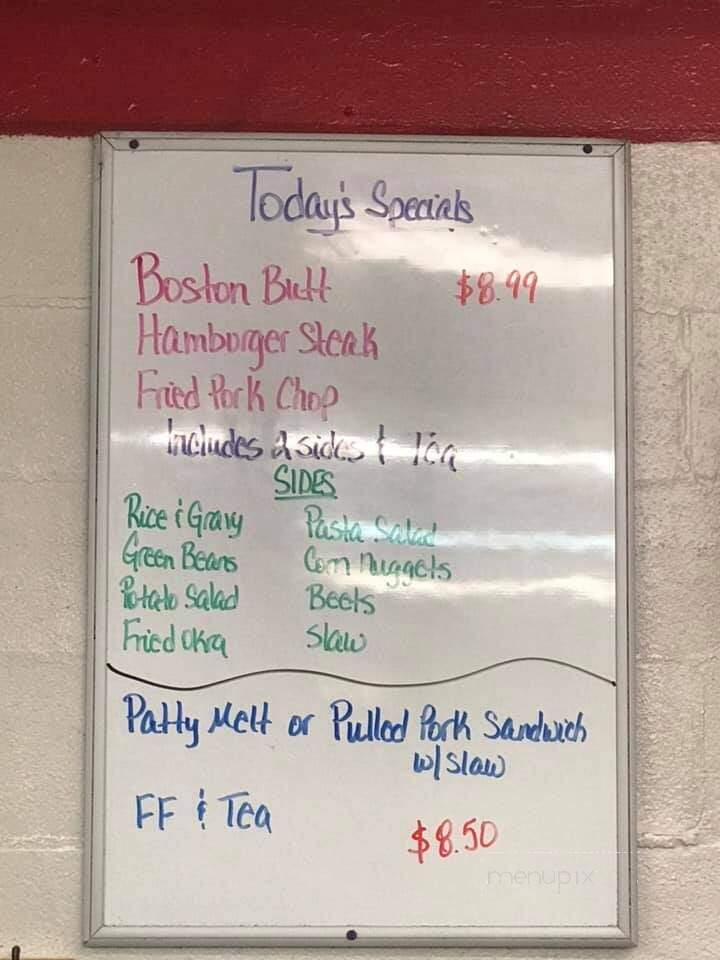 Today's Specials
Boston Butt $8.99
Hamburger Steak
Fried Pork Chop
Includes 2 sides & Tea
SIDES
Rice & Gravy Pasta Salad
Green Beans Corn Nuggets
Potato Salad Beets
Fried Okra Slaw
Patty Melt or Pulled Pork Sandwich
w/slaw
FF & Tea
$8.50
menupix